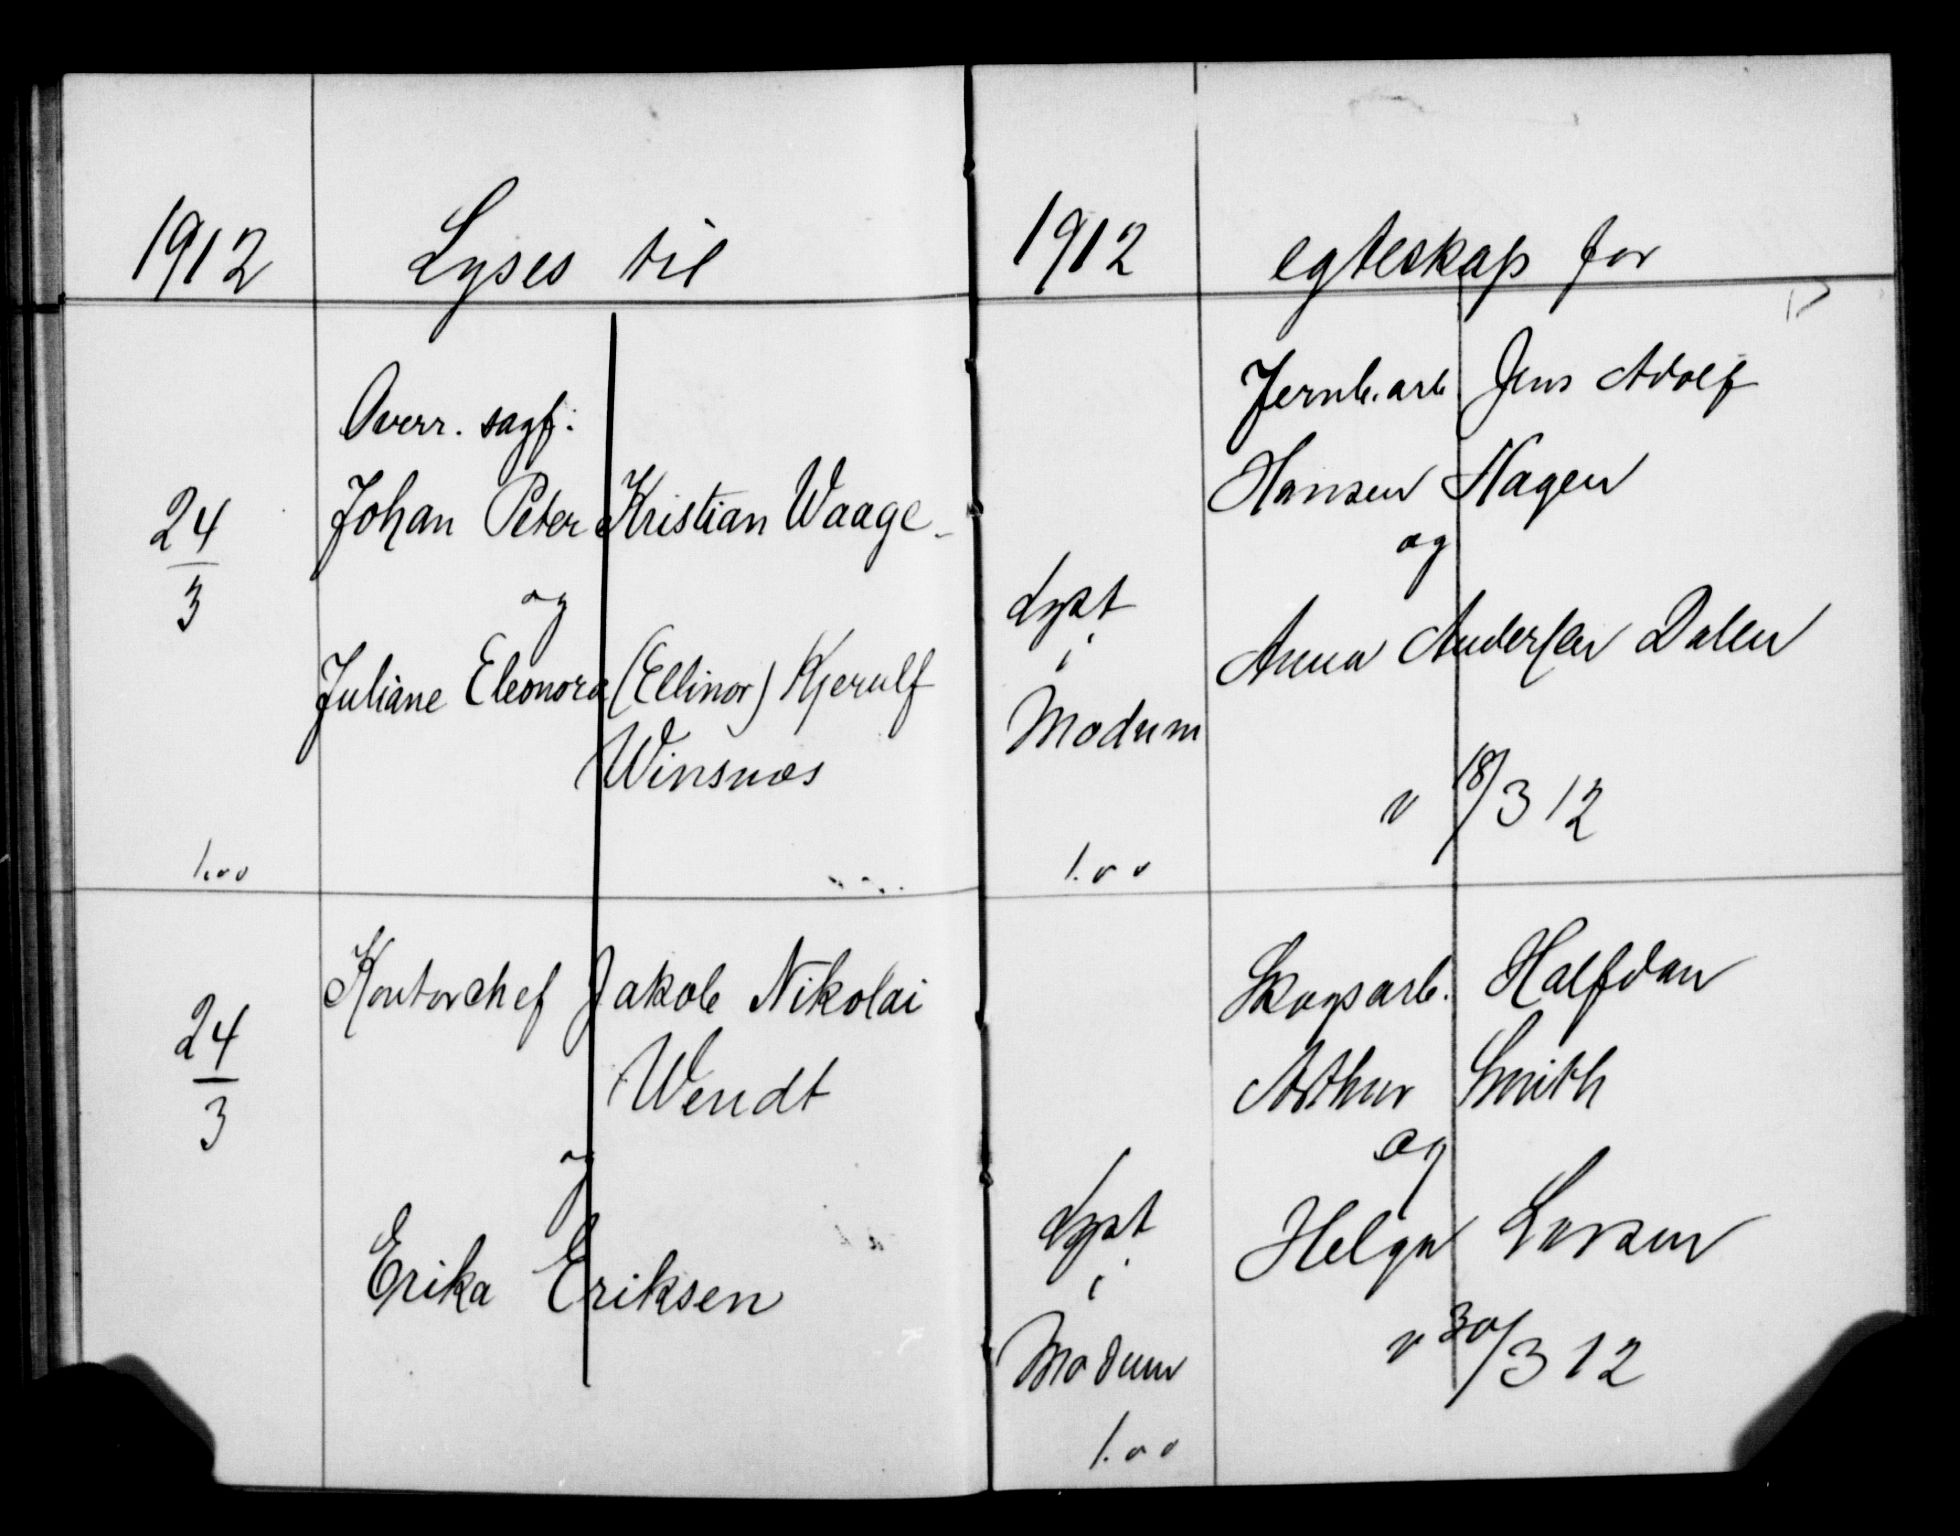 1912 Lyses til
Overr. sagf:
24/3 Johan Peter Kristian Waage
og
Juliane Eleonora (Ellinor) Kjerulf
Winsnæs
1.00
Kontorchef Jakob Nikolai
24/3 Wendt
og
Erika Eriksen
1912 egteskap for
Jernb.arb Jens Adolf
Hansen Hagen
og
Lyst
i
Anna Andersen Dalen
Modum
v 18/3 12
1.00
Skogsarb. Halfdan
Arthur Smith
og
Lyst
i
Helga Larsen
Modum
v 30/3 12
1.00